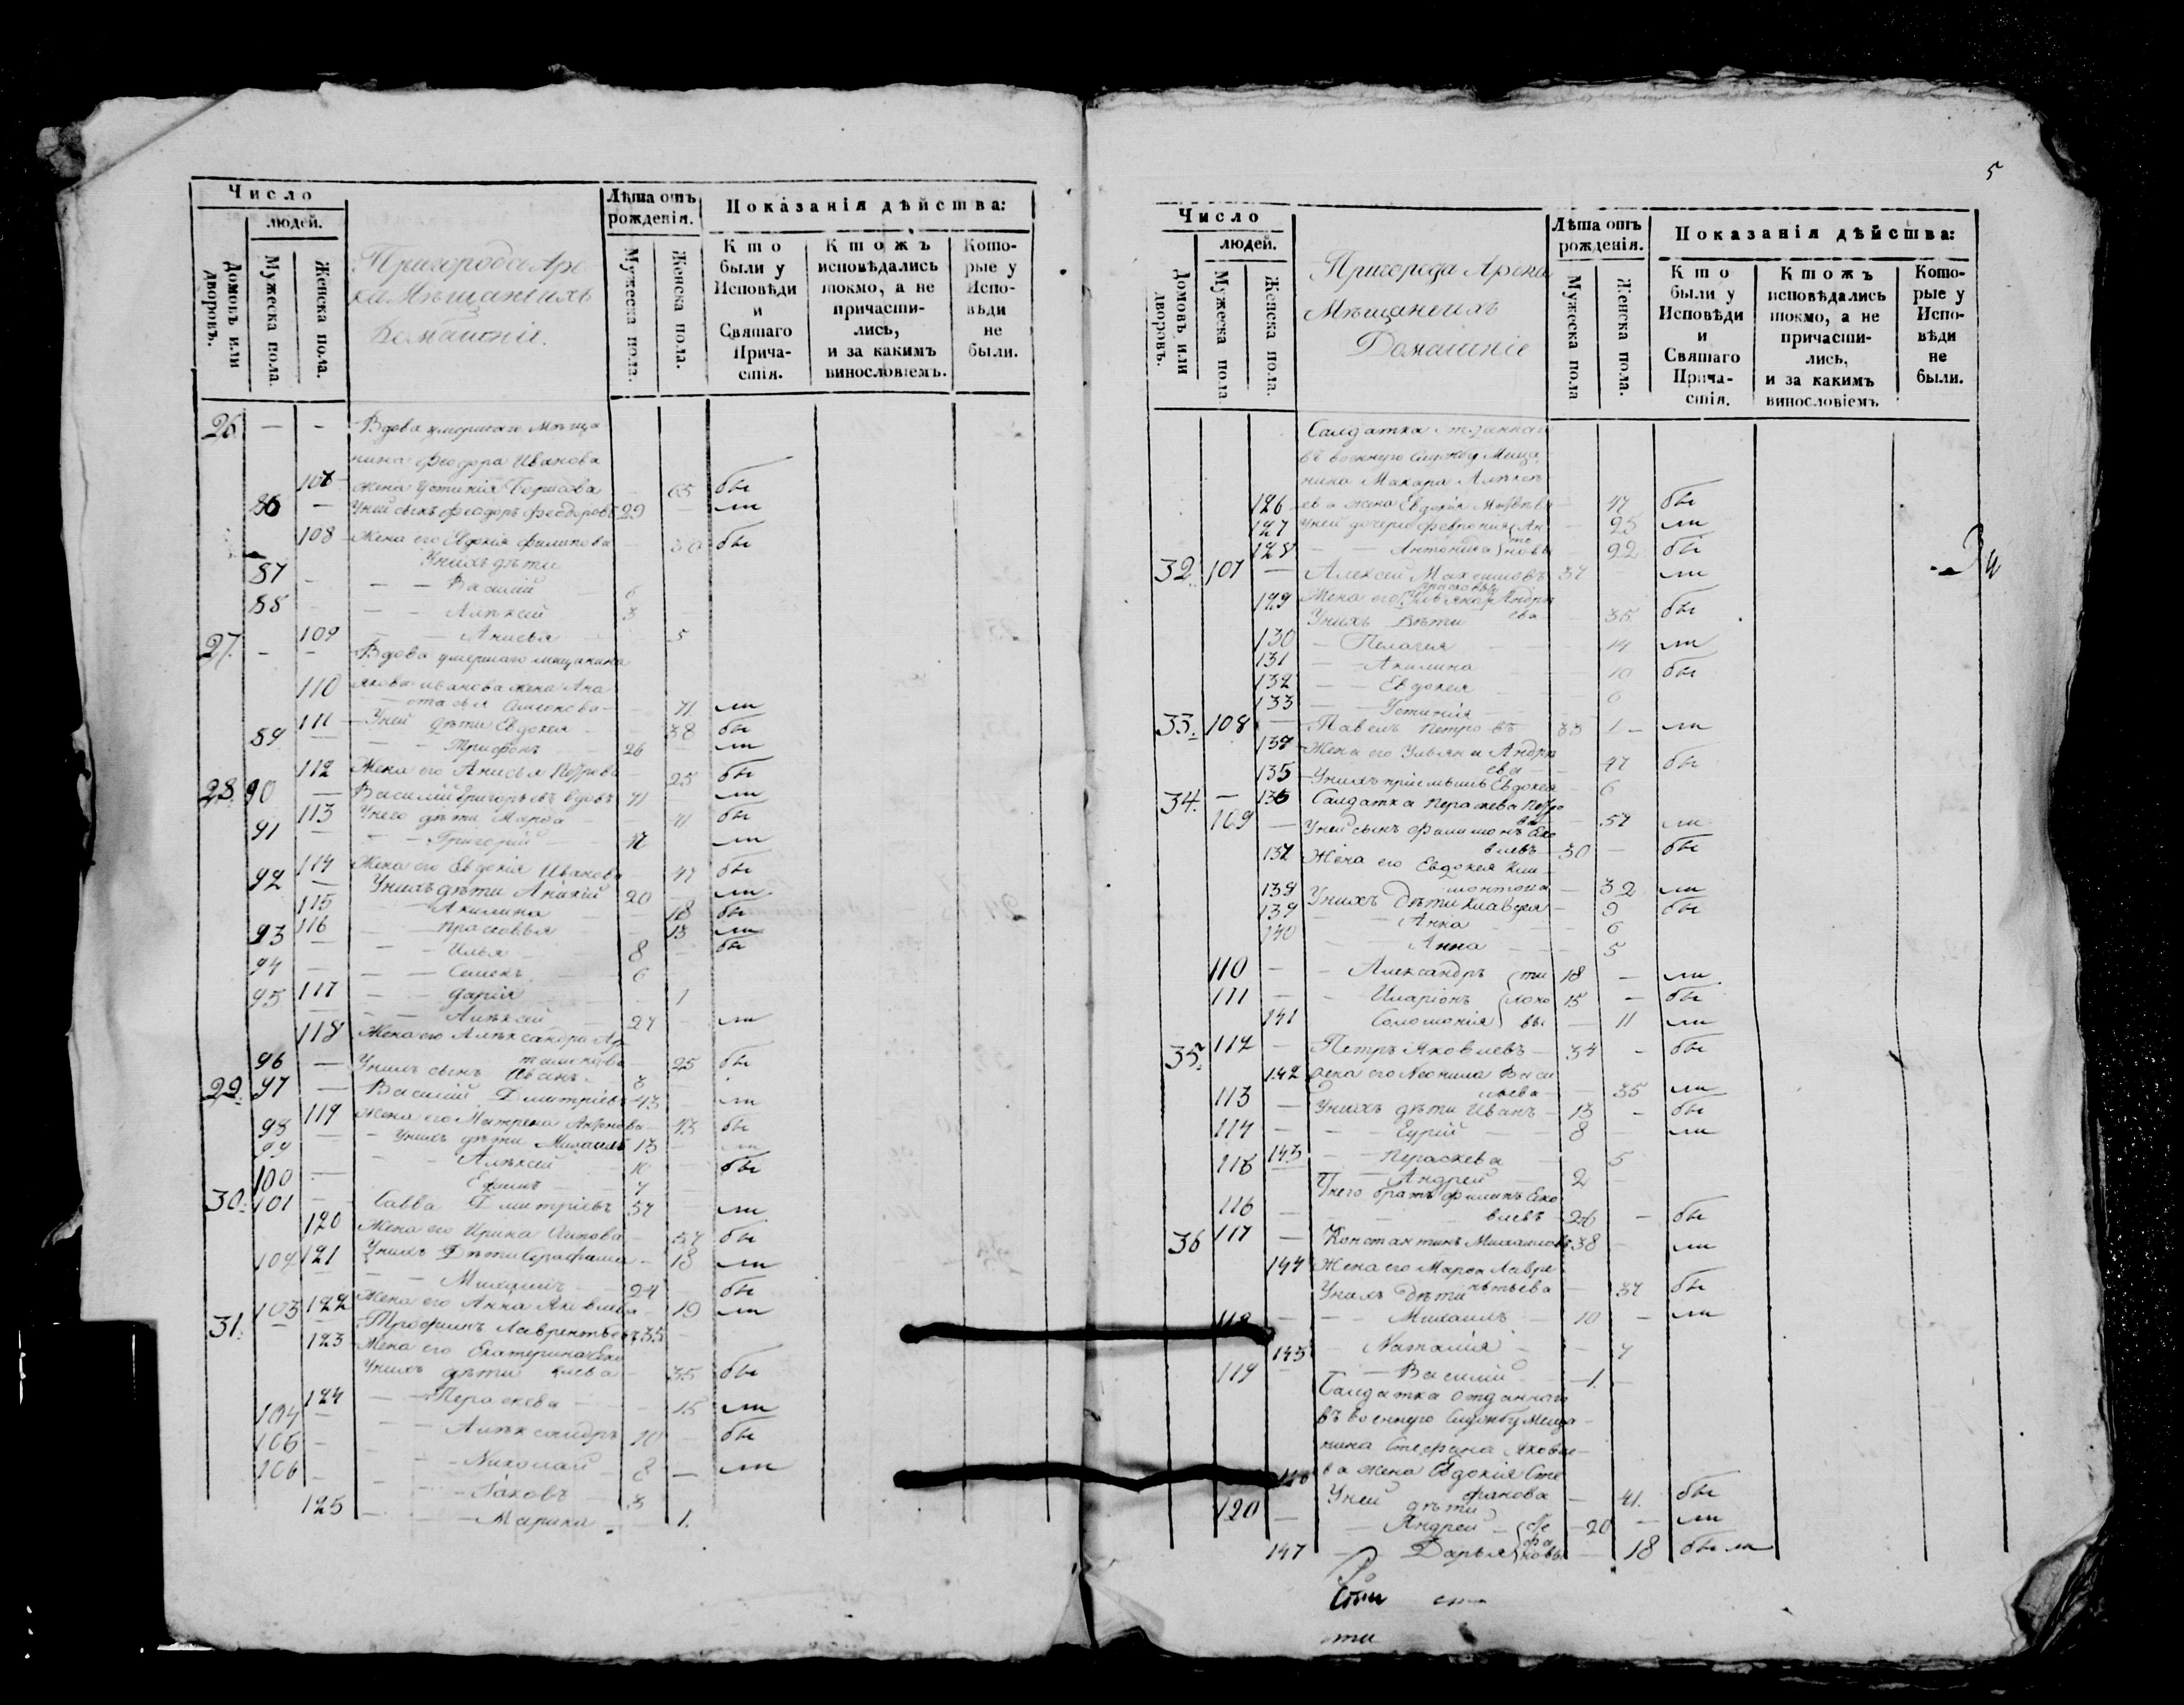 Число
людей.
Домовъ или дворовъ.
Мужеска пола.
Женска пола.
Пригорода Арс
ка Мѣщанъ ихъ
Домашніе.
Лѣта отъ рожденія.
Мужеска пола.
Женска пола.
Показанія дѣйства:
Кто были у Исповѣди и Святаго Причастія.
Ктожъ исповѣдались токмо, а не причастились, и за какимъ винословіемъ.
Которые у Исповѣди не были.
26. — — Вдова умершаго Мѣща
нина Феодора Иванова
107 жена Устинія Борисова 65 бы
86 — Уней сынъ Феодоръ Феодоровъ 29 — ли
108 Жена его Евдокія Филипова 30 бы
Унихъ дѣти
87 — — Василій 6
88 — — Алѣксей 3
109 — Анисья 5
27. — — Вдова умершаго мещанина
110 Якова Иванова жена Ана
стасья Симонова 71 ли
111 Уней дѣти Евдокея 38 бы
89 — — Трифонъ 26 — ли
112 Жена его Анисья Петрова 25 бы
28. 90 — Василій Григорьевъ вдовъ 71 — ли
113 Унего дѣти Марфа 41 бы
91 — — Григорій ли
114 Жена его Евдокія Иванова 47 бы
92 — Унихъ дѣти 20 — ли
115 Акилина 18 бы
116 Прасковья 13 ли
93 — — Илья 8 — бы
94 — — Семенъ 6
117 — — Дарія 1
95 — — Алѣксей 27 — ли
118 Жена его Алѣксандра Ар
25 бы
96 — Унихъ сынъ Иванъ 3
29. 97 — Василій Дмитріевъ 43 — ли
119 Жена его Матрена Антонова 43 бы
98 — Унихъ дѣти Михаилъ 13 — ли
99 — Алѣксей 10 — бы
100 — Ефимъ 7
30. 101 — Савва Дмитріевъ 57 — ли
120 Жена его Ирина Осипова 57 бы
121 Унихъ Дѣти Серафима 18 ли
— Михаилъ 24 — бы
122 Жена его Анна Яковлева 19 ли
31. 103 — Трофимъ Лаврентьевъ 35 —
123 Жена его Екатерина Яко
влева 35 бы
Унихъ дѣти
124 — — Пераскева 15 ли
104 — — Алѣксандръ 10 — бы
105 — — Николай 8 — ли
106 — — Іаковъ 3
125 — — Марина 1.
5
Число
людей.
Домовъ или дворовъ.
Мужеска пола.
Женска пола.
Пригорода Арска
Мѣщанъ ихъ
Домашніе
Лѣта отъ рожденія.
Мужеска пола
Женска пола.
Показанія дѣйства:
Кто были у Исповѣди и Святаго Причастія.
Ктожъ исповѣдались токмо, а не причастились, и за какимъ винословіемъ.
Которые у Исповѣди не были.
Салдатка отданнаго
въ военную службу Меща
нина Макара Алѣксѣ
126 ева жена Евдокія 47 бы
127 Уней дочери Феврония 25 ли
128 — — Антонида 22 бы
32. 107 — Алексей Максимовъ 37 ли
129 Жена его Андре
ева 35 бы
Унихъ Дѣти
130 — Пелагея 14 ли
131 — Акилина 10 бы
132 — — Евдокея 6
133 — — Устинія 1 —
33. 108 — Павелъ Петровъ 35 ли
134 Жена его Ульяна Андре
ева 47 бы
135 Унихъ пріемышъ Евдокея 6
34. — 136 Салдатка Пераскева Петро
ва 57 ли
109 — Уней сынъ Филимонъ Яко
влевъ 30 — бы
137 Жена его Евдокея
— 32 ли
138 Унихъ Дѣти Клавдея 9 бы
139 — Анна 6
140 — Анна 5
110 — — Александръ 18 — ли
111 — — Иларіонъ 15 — бы
141 Соломонія 11 ли
35. 112 — Петръ Яковлевъ 34 — бы
142 Жена его Неонила Васи
льева 35 ли
113 — Унихъ дѣти Иванъ 13 — бы
114 — — 8 — ли
143 — Пераскева 5
115 — Андрей 2
Унего братъ Филипъ Яко
116 — влевъ 26 — бы
36 117 — Константинъ Михаиловъ 38 ли
144 Жена его Марфа Лавре
нтьева 37 бы
Унихъ Дѣти
118 — — Михаилъ 10 — ли
145 — Наталія 7
119 — Василій 1. —
Салдатка отданнаго
въ военную службу Меща
нина Стефана Яковле
146 ва жена Евдокія Сте
фанова 41. бы
Уней дѣти
120 — — Андрей 20 — ли
147 — Дарья Сте фа новы 18 были